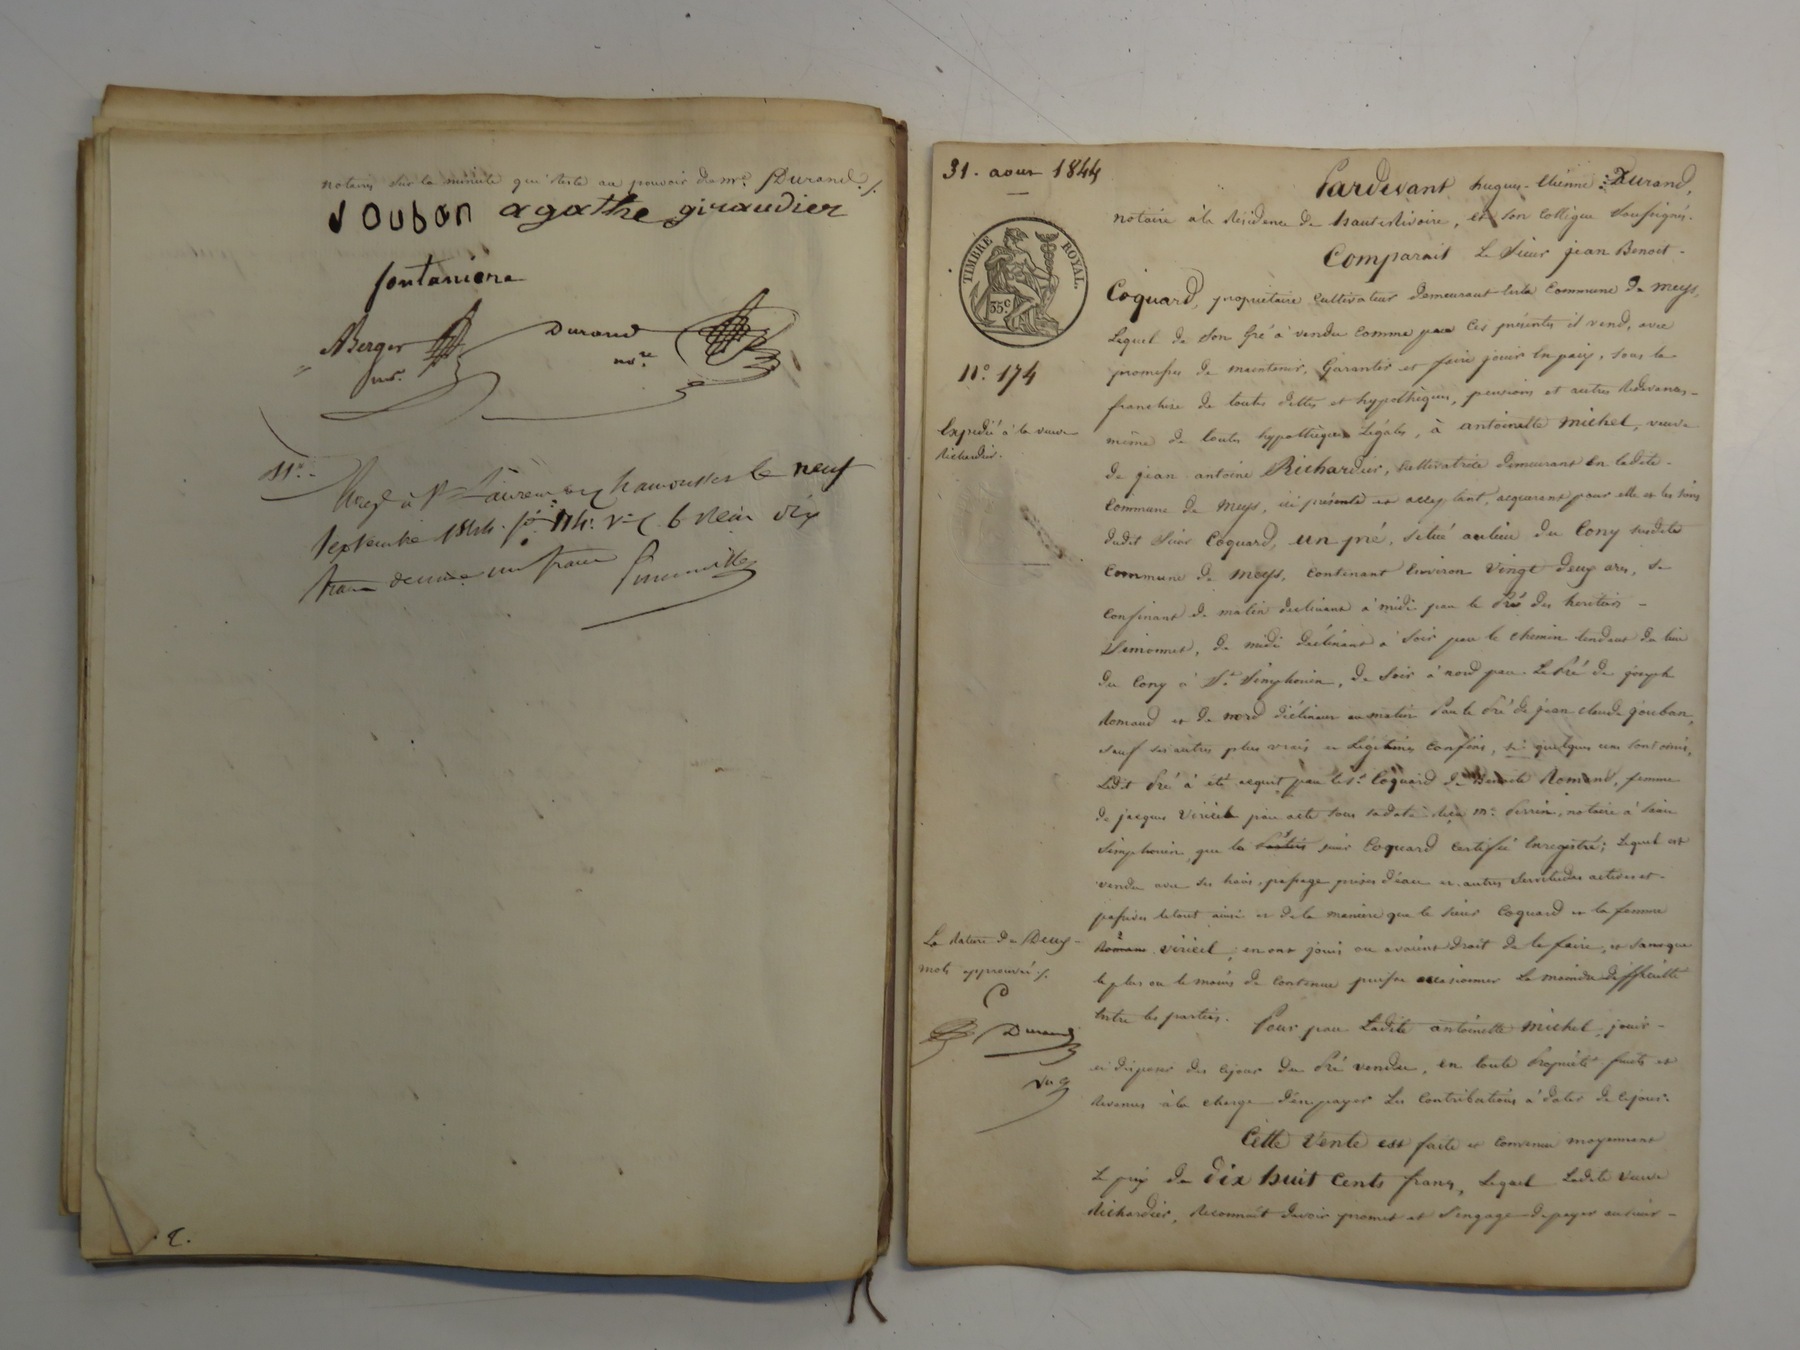 notaires sur la minute qui reste au pouvoir de me. Durand ./.
Joubon agathe giraudier
fontaniere
Berger Durand
nre. nore.
Septembre 1844. fo. 114.
franc
C.
31. aout 1844
TIMBRE ROYAL.
35c.
No. 174
Expédié à la veuve
Richardier.
La rature de Deux
mots approuvés ./.
Durand
Pardevant hugues-Etienne Durand,
notaire à la Résidence de hauterivoire, et son collègue soussignés.
Comparait Le Sieur jean Benoit
Coquard, propriétaire cultivateur demeurant en la commune de meys,
Lequel de son gré a vendu comme par ces présentes il vend, avec
promesses de maintenir, Garantir et faire jouir en paix, sous la
franchise de toutes dettes et hypothèques, pensions et autres redevances
même de toutes hypothèques Légales, à antoinette michel, veuve
de jean antoine Richardier, cultivatrice demeurant en ladite
commune de meys, ici présente et acceptant, acquerant pour elle et les siens
dudit sieur Coquard, un pré, situé au lieu du Cony susdite
commune de meys, contenant environ vingt deux ares, se
confinant de matin declinant à midi par le Pré des heritiers
Simonnet, de midi declinant à soir par le chemin tendant du lieu
du Cony à St. Simphorien, de soir à nord par Le Pré de joseph
Romand et de nord déclinant au matin Par le Pré de jean claude jouban,
sauf ses autres plus vrais et Légitimes confins, si quelques uns sont omis,
Ledit Pré a été acquit par le sr. Coquard de Benoite Romand, femme
de jacques Viricel par acte sous sa date reçu me. Perrin, notaire à saint
Simphorien, que le sieur Coquard certifie enregistré; Lequel est
vendu avec ses haies, passage prises d'eau et autres servitudes actives et
passives le tout ainsi et de la manière que le sieur Coquard et la femme
Romand viricel, en ont joui ou avaient droit de le faire, et sans que
le plus ou le moins de contenue puisse occasionner La moindre difficulté
entre les parties. Pour par Ladite antoinette michel, jouir
et disposer dès cejour du Pré vendu, en toute Propriété fruits et
Revenus à la charge d'en payer Les contributions à dater de cejour.
Cette Vente est faite et convenue moyennant
Le prix de dix huit cents francs, Lequel Ladite veuve
Richardier, reconnait devoir promet et s'engage de payer au sieur